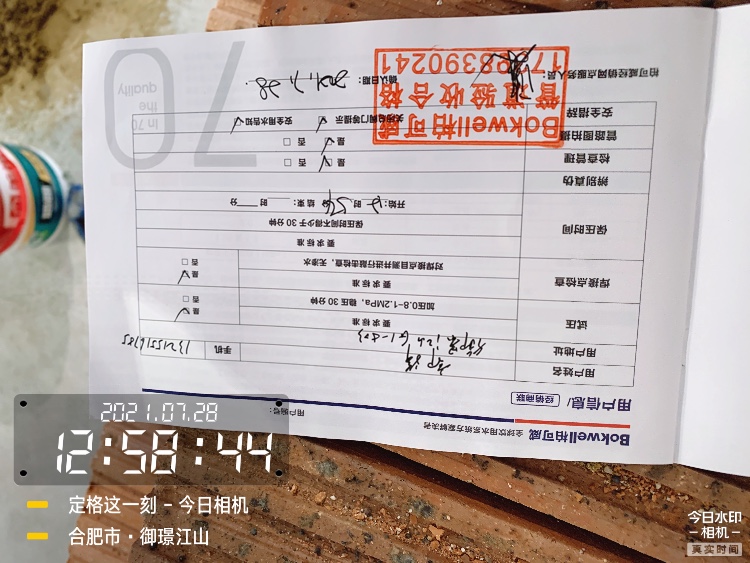 Bokwell柏可威 全球饮用水系统方案解决者
用户编号：
用户信息/ 经销商联
用户姓名
用户地址
手机
试压
要求标准
加压0.8-1.2MPa，稳压30分钟
是
否
焊接点检查
要求标准
对焊接点目测并进行敲击检查，无渗水
是
否
保压时间
要求标准
保压时间不得少于30分钟
开始： 时 分 结束 时 分
辨别真伪
检查管理
是 否
管路图拍摄
是 否
安全措辞
关闭总阀门等提示 安全用水告知
柏可威经销网点服务人员
确认日期： 2021.7.28
Bokwell柏可威
管道验收合格
70
In 70
the
quality
2021.07.28
12:58:44
定格这一刻 - 今日相机
合肥市·御璟江山
今日水印
-相机-
真实时间